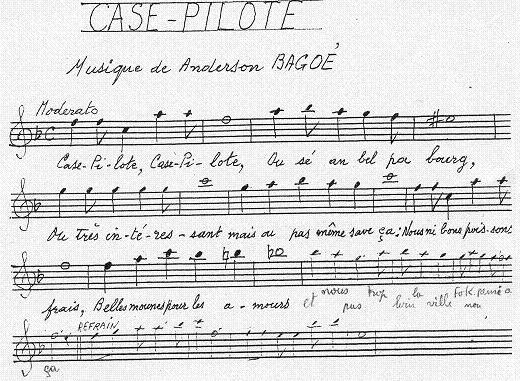 CASE-PILOTE
Musique de Anderson BAGOÉ
Moderato
Case-Pi-lote, Case-Pi-lote, Ou sé an bel pa bourg,
Ou très in-té-res-sant mais ou pas même save ça: Nous ni bons pois-sons
frais, Belles mounes pour les a-mours et nous trop la
pas loin ville
REFRAIN
ça